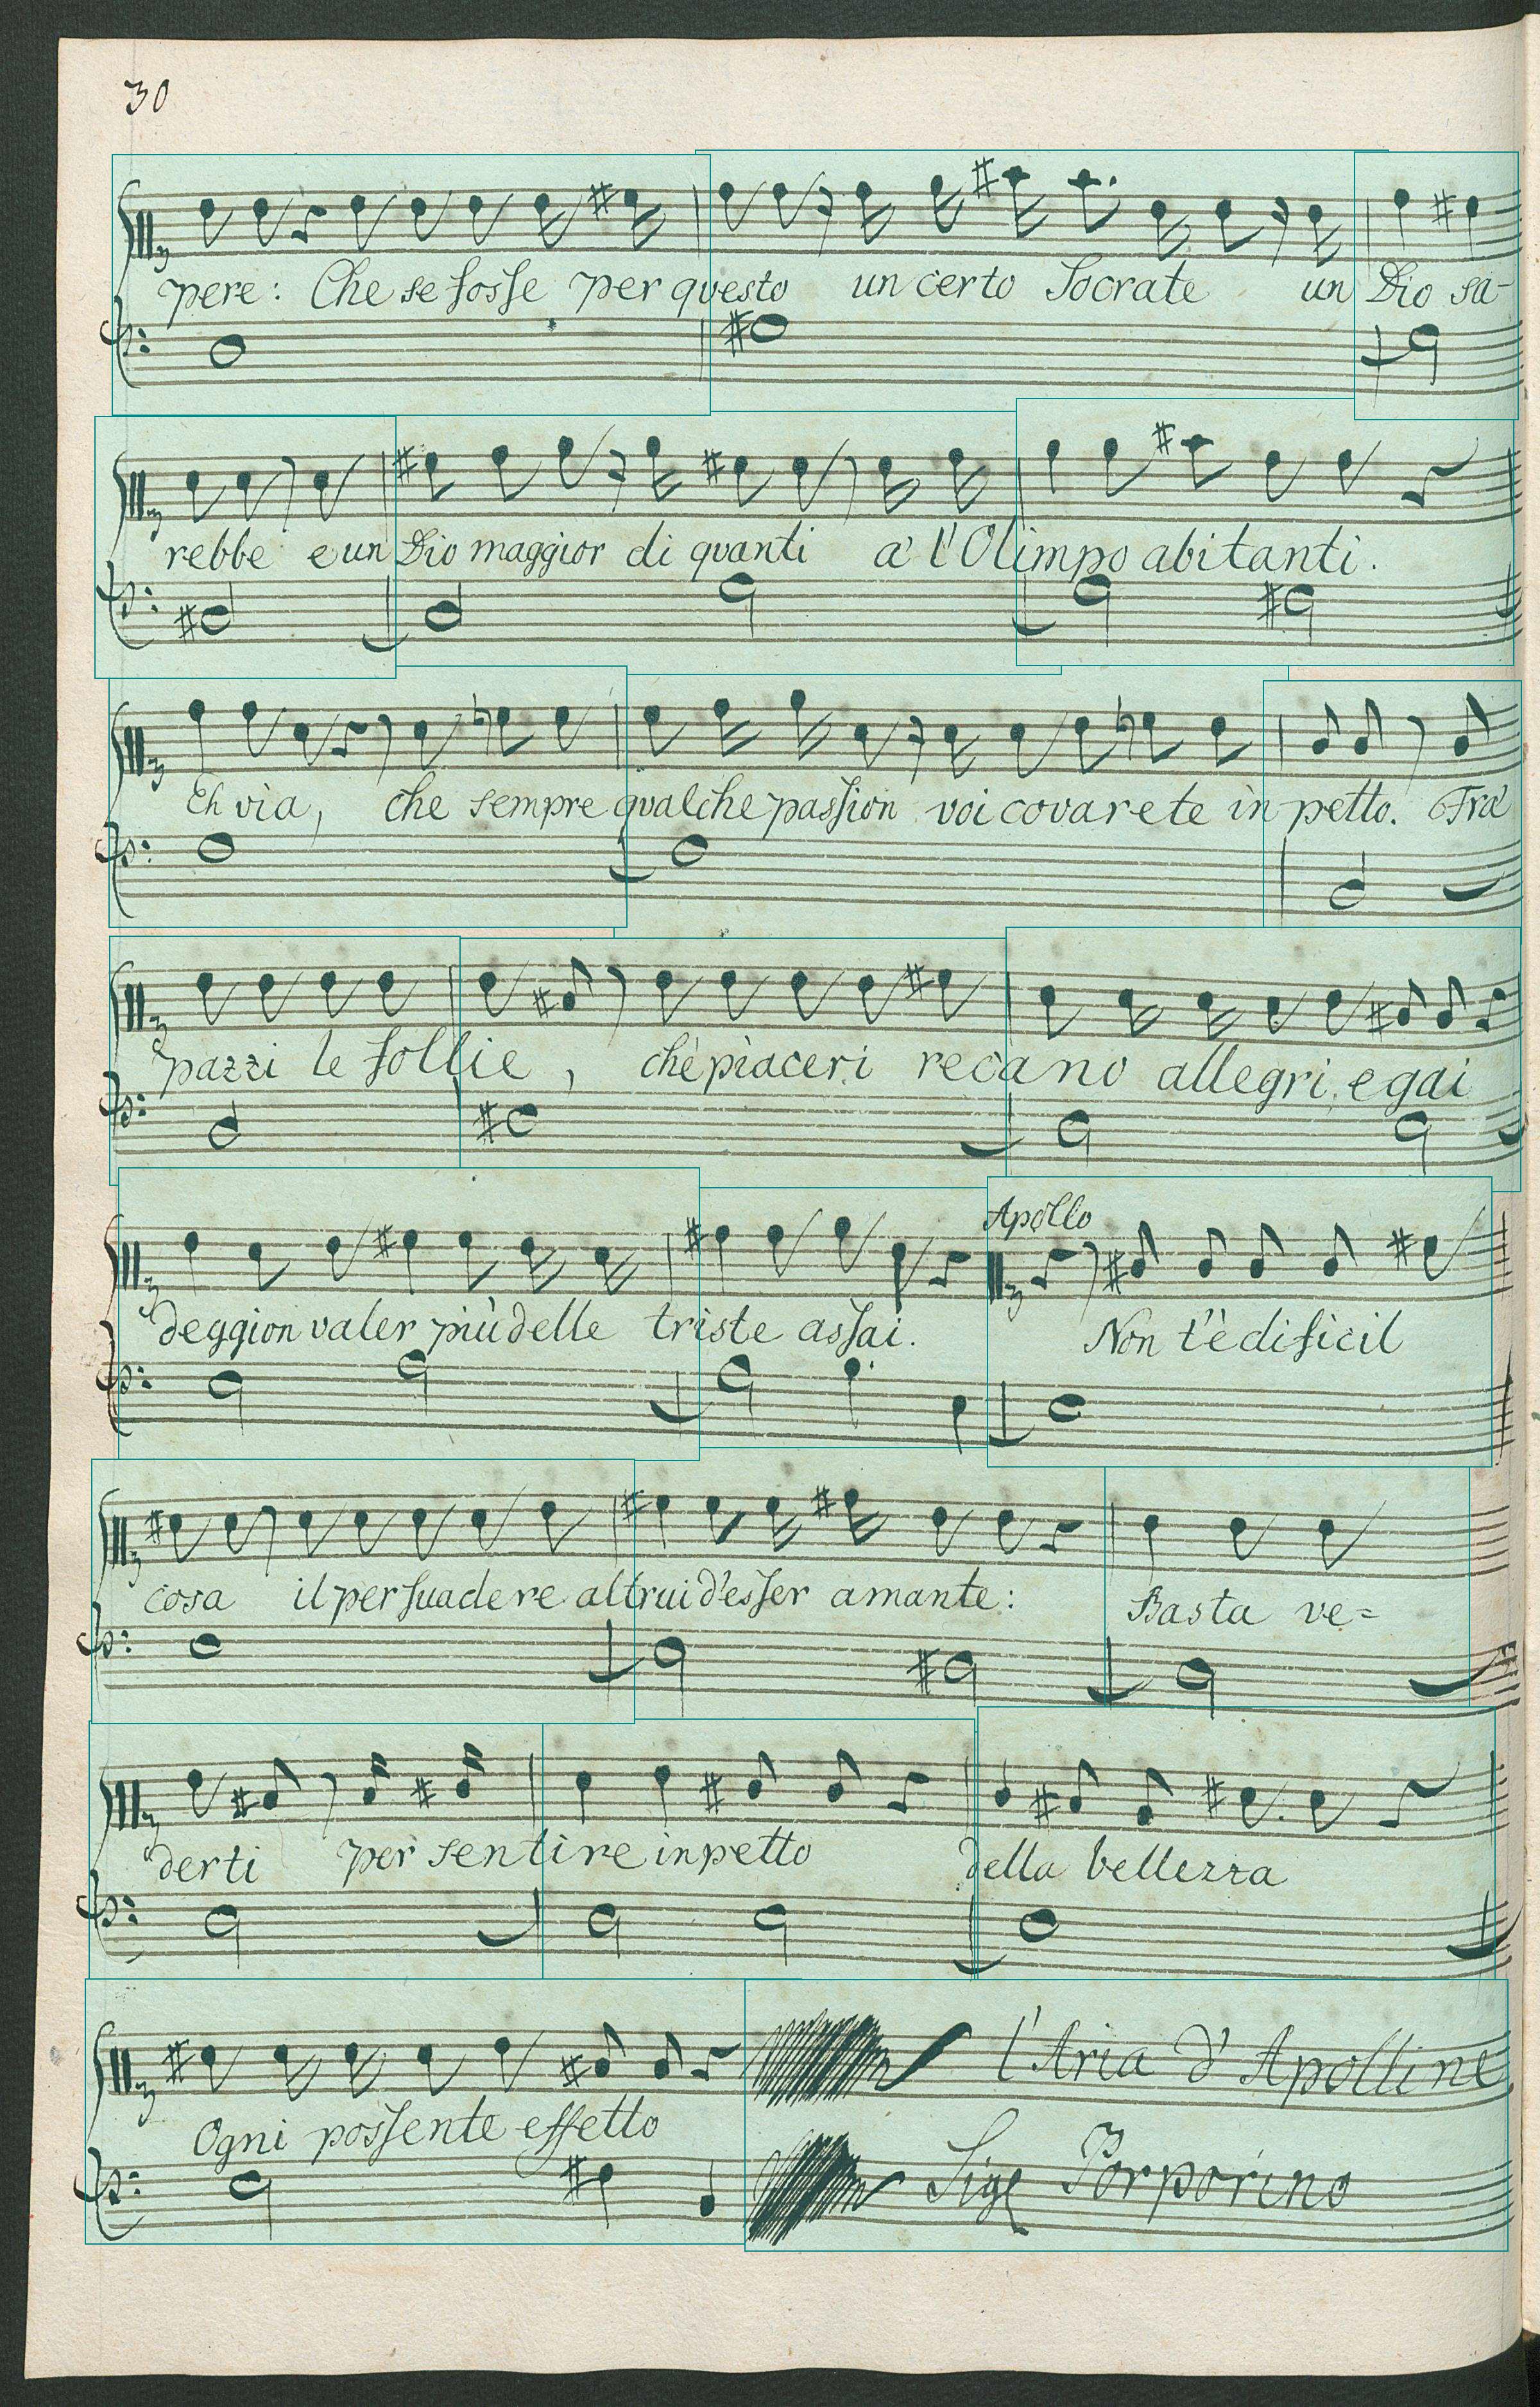 30
pere: Che se fosse per questo un certo Socrate un Dio sa-
rebbe e un Dio maggior di quanti à l'Olimpo abitanti.
Eh via, che sempre qualche passion voi covarete in petto. Frà
pazzi le follie, chè piaceri recano allegri, e gai
Apollo
deggion valer più delle triste assai. Non t'è dificil
cosa il persuadere altrui d'esser amante: Basta ve=
derti per sentire in petto della bellezza
l'Aria d'Apolline
Ogni possente effetto
Sigr Porporino